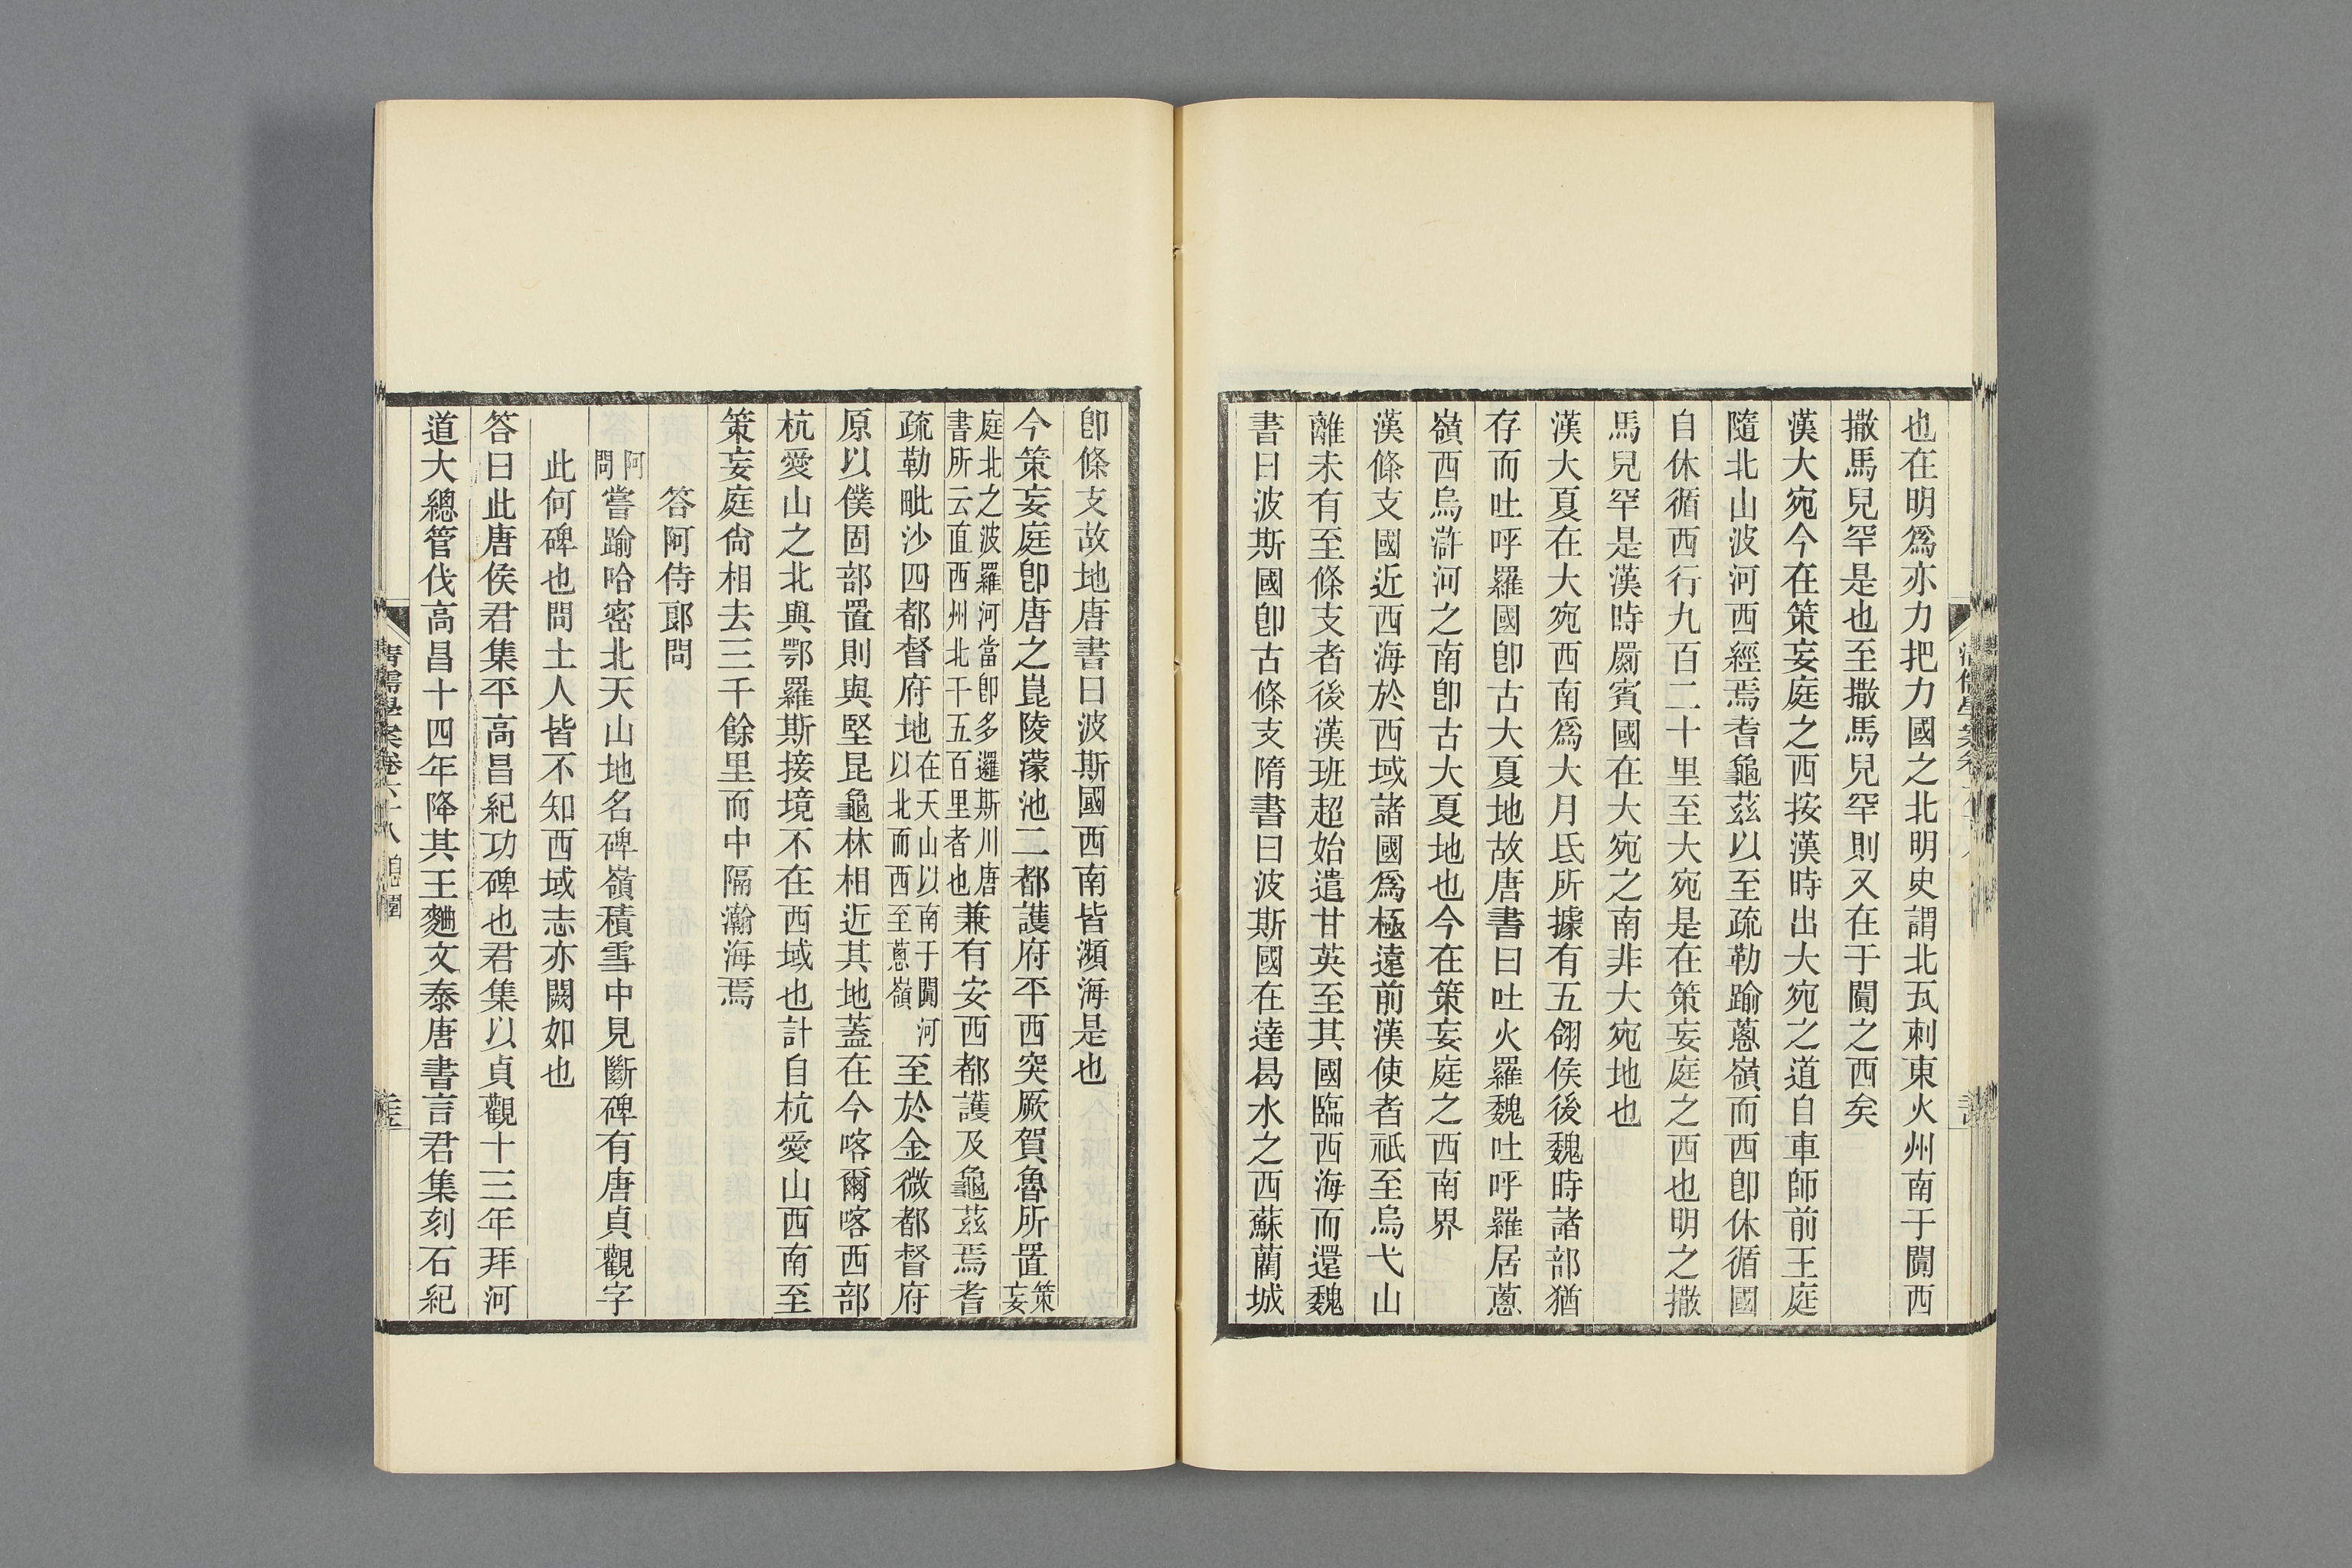 也在明爲亦力把力國之北明史謂北瓦刺東火州南于闐西
撒馬兒罕是也至撒馬兒罕則又在于闐之西矣
漢大宛今在策妄庭之西按漢時出大宛之道自車師前王庭
隨北山波河西經焉耆龜茲以至疏勒踰蔥嶺而西卽休循國
自休循西行九百二十里至大宛是在策妄庭之西也明之撒
馬兒罕是漢時罽賓國在大宛之南非大宛地也
漢大夏在大宛西南爲大月氏所據有五翎侯後魏時諸部猶
存而吐呼羅國卽古大夏地故唐書曰吐火羅魏吐呼羅居蔥
嶺西烏滸河之南卽古大夏地也今在策妄庭之西南界
漢條支國近西海於西域諸國爲極遠前漢使者祇至烏弋山
離未有至條支者後漢班超始遣甘英至其國臨西海而還魏
書曰波斯國卽古條支隋書曰波斯國在達曷水之西蘇藺城
卽條支故地唐書曰波斯國西南皆瀕海是也
今策妄庭卽唐之崑陵濛池二都護府平西突厥賀魯所置策妄
庭北之波羅河當卽多邏斯川唐書所云直西州北千五百里者也兼有安西都護及龜茲焉耆
疏勒毗沙四都督府地在天山以南于闐河以北而西至蔥嶺至於金微都督府
原以僕固部置則與堅昆龜林相近其地蓋在今喀爾喀西部
杭愛山之北與鄂羅斯接境不在西域也計自杭愛山西南至
策妄庭尙相去三千餘里而中隔瀚海焉
答阿侍郎問
阿問嘗踰哈密北天山地名碑嶺積雪中見斷碑有唐貞觀字
此何碑也問土人皆不知西域志亦闕如也
答曰此唐侯君集平高昌紀功碑也君集以貞觀十三年拜河
道大總管伐高昌十四年降其王麴文泰唐書言君集刻石紀
清儒學案卷六十八